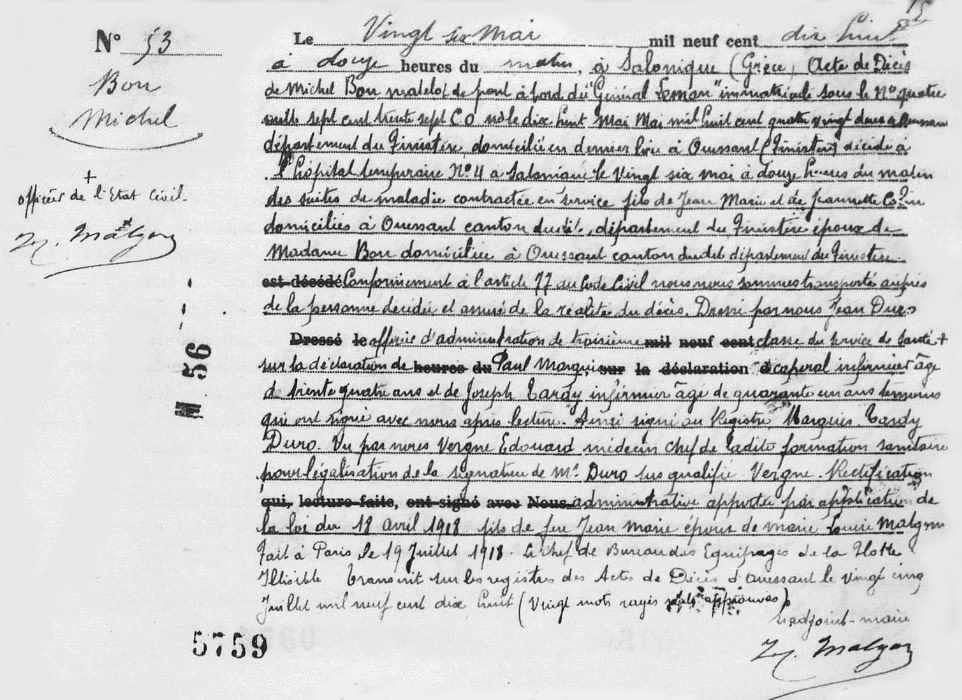 15
N° 53
Bon
Michel
+
officier de l'Etat Civil.
M. Malgorn
M. 56 - - -
Le Vingt six Mai mil neuf cent dix huit
à douze heures du matin, à Salonique (Grèce) Acte de Décès
de Michel Bon matelot de pont à bord du "Général Leman" immatriculé sous le N° quatre
mille sept cent trente sept C.O né le dix huit Mai Mai mil huit cent quatre vingt deux à Ouessant
département du Finistère, domicilié en dernier lieu à Ouessant (Finistère) décédé à
l'hôpital temporaire N° 4 à Salonique le Vingt six mai à douze heures du matin
des suites de maladie contractée en service fils de Jean Marie et de Jeannette
domiciliés à Ouessant canton dudit, département du Finistère époux de
Madame Bon domiciliée à Ouessant canton dudit département du Finistère.
est décédé Conformément à l'article 77 du Code Civil nous nous sommes transporté auprès
de la personne décédée et assuré de la réalité du décès. Dressé par nous Jean Duro
Dressé le officier d'administration de troisième mil neuf cent classe du service de santé +
sur la déclaration de heures du Paul Marquis sur la déclaration d caporal infirmier âgé
de trente quatre ans et de Joseph Tardy infirmier âgé de quarante un ans témoins
qui ont signé avec nous après lecture. Ainsi signé au Registre Marquis Tardy
Duro. Vu par nous Vergne Edouard médecin chef de ladite formation sanitaire
pour légalisation de la signature de Mr. Duro sus qualifié Vergne. Rectification
qui, lecture faite, ont signé avec Nous administrative apportée par application de
la loi du 18 avril 1918 fils de feu Jean Marie époux de Marie Louise Malgorn
Fait à Paris le 19 Juillet 1918. Le chef de Bureau des Equipages de la Flotte
Illisible Transcrit sur les registres des Actes de Décès d'Ouessant le vingt cinq
Juillet mil neuf cent dix huit (Vingt mots rayés nuls approuvés)
L'adjoint-maire
M. Malgorn
5759